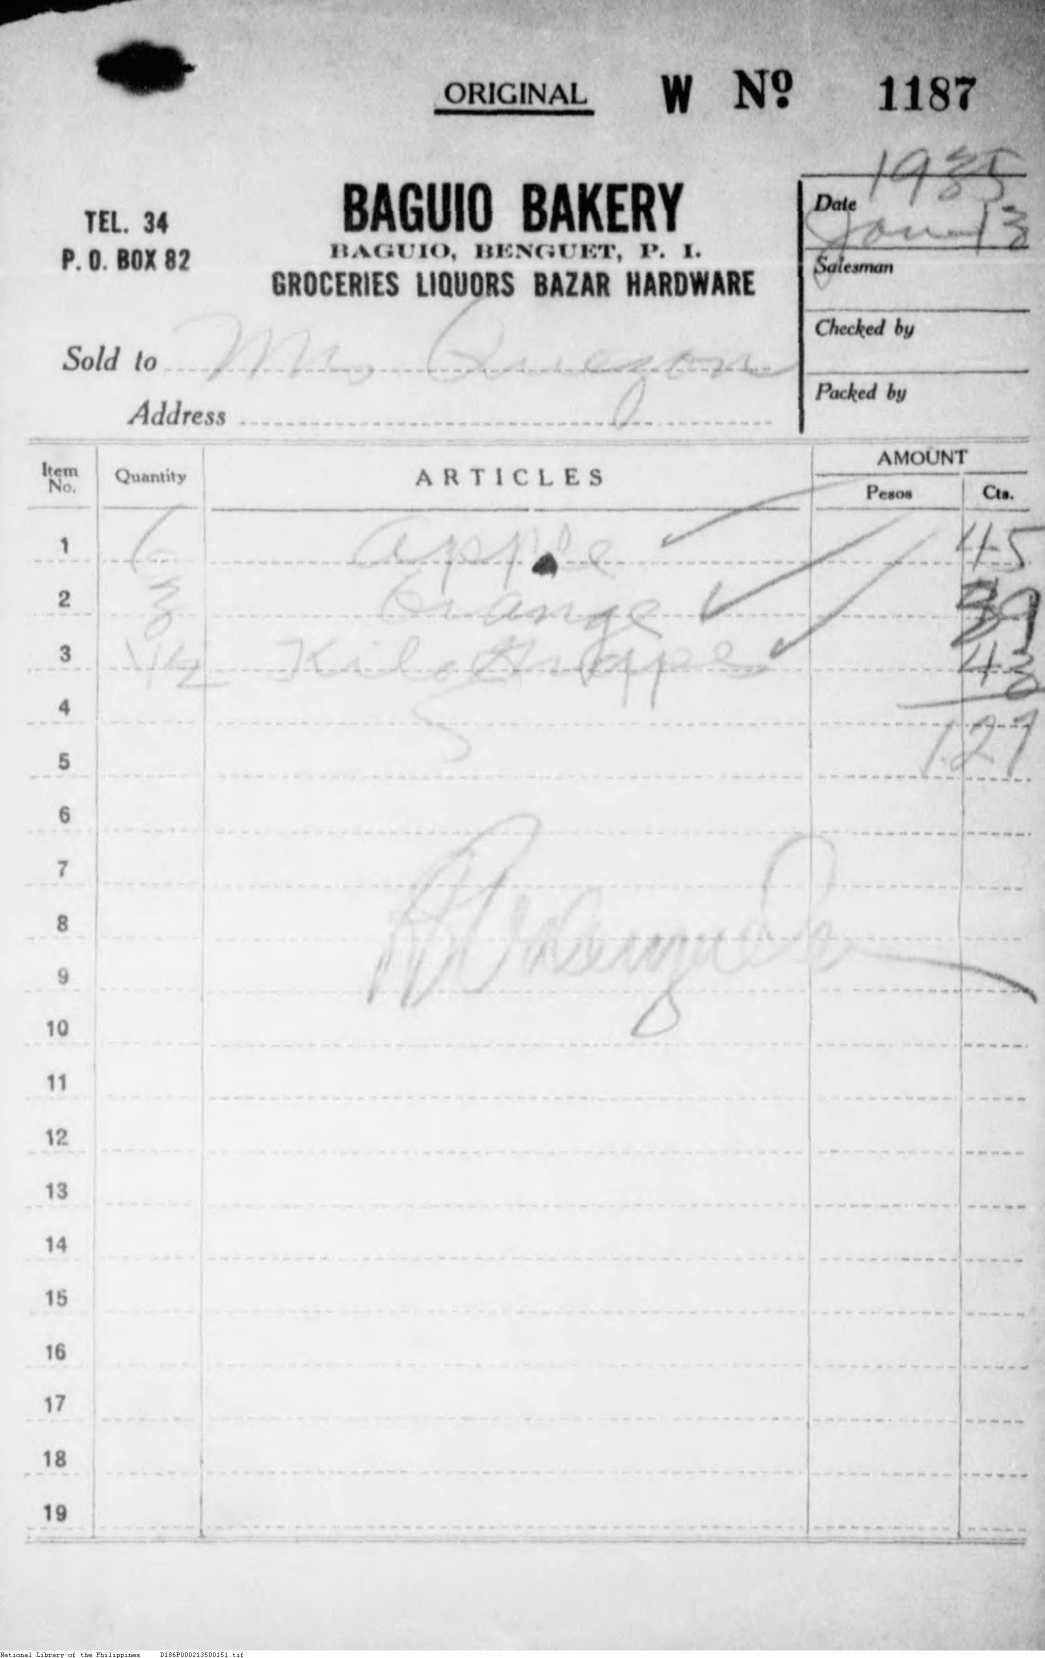 ORIGINAL W Nº 1187
1935
TEL. 34
P. O. BOX 82
BAGUIO BAKERY
BAGUIO, BENGUET, P. I.
GROCERIES LIQUORS BAZAR HARDWARE
Date Jan 13
Salesman
Checked by
Packed by
Sold to Mr. Quezon
Address
Item No. Quantity ARTICLES AMOUNT
Pesos Cts.
1 6 apple 45
2 3 Orange 39
3 1/2 Kilo 43
4
1.27
5
6
7
8
9
10
11
12
13
14
15
16
17
18
19
National Library of the Philippines D186P000213500151.tif